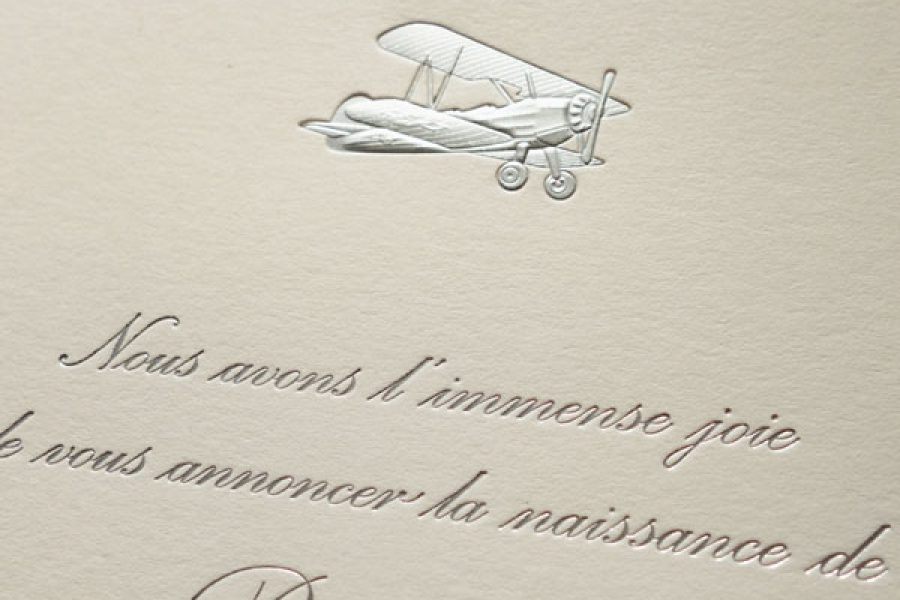 Nous avons l'immense joie
de vous annoncer la naissance de